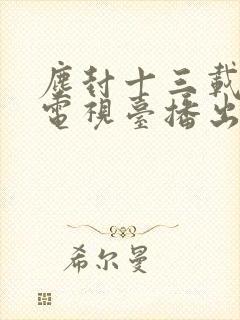 塵封十三載
電視臺播出
希尔曼